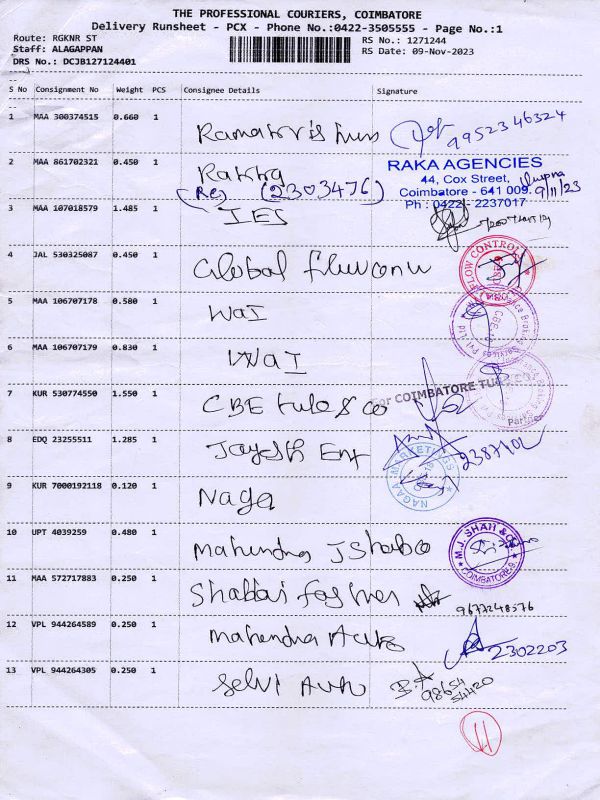 THE PROFESSIONAL COURIERS, COIMBATORE
Delivery Runsheet - PCX - Phone No.:0422-3505555 - Page No.:1
Route: RGKNR ST
Staff: ALAGAPPAN
DRS No.: DCJB127124401
RS No.: 1271244
RS Date: 09-Nov-2023
S No Consignment No Weight PCS Consignee Details Signature
1 MAA 300374515 0.660 1
9952346324
2 MAA 861702321 0.450 1
(2303476)
RAKA AGENCIES
44, Cox Street,
Coimbatore - 641 009.
Ph : 0422 - 2237017
9/11/23
3 MAA 107018579 1.485 1 IES
4 JAL 530325087 0.450 1 Global
5 MAA 106707178 0.580 1 WaI
6 MAA 106707179 0.830 1 WaI
7 KUR 530774550 1.550 1 CBE tube & co
For COIMBATORE
8 EDQ 23255511 1.285 1 Jayesh Ent
9 KUR 7000192118 0.120 1 Naga
NAGAA MARKETINGS
10 UPT 4039259 0.480 1 Mahendra J Shah & co
M.J. SHAH & CO.
COIMBATORE-9
11 MAA 572717883 0.250 1
9677248576
12 VPL 944264589 0.250 1 Mahendra
2302203
13 VPL 944264305 0.250 1 Selvi
98654
54420
11